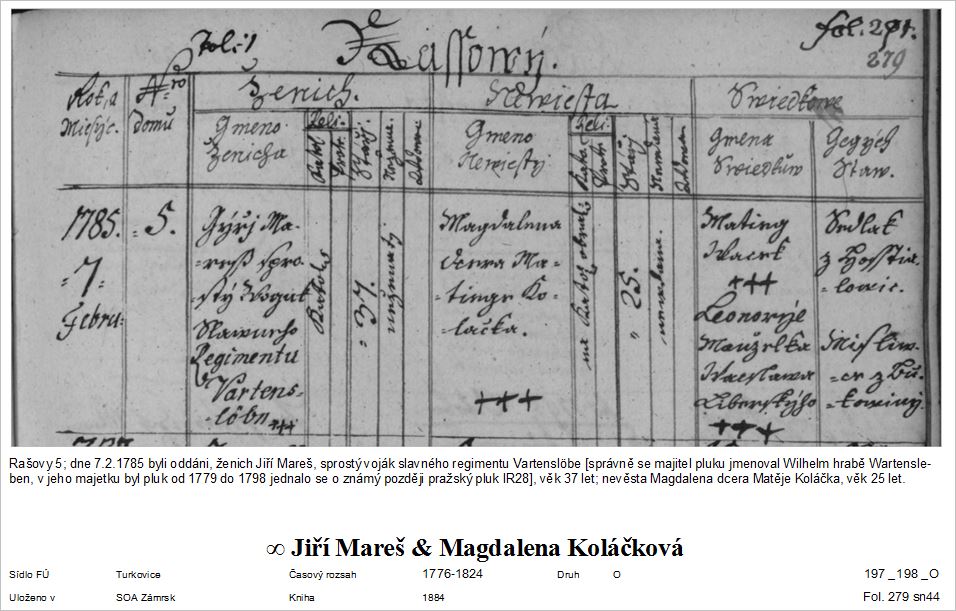 Toli:
Rassowý.
fol. 291.
279
Rok, a Miesýc.
Nro domu
Ženich.
Newiesta
Swiedkowe
Gmeno Ženicha
Reli:
Katol
Prot:
Gmeno Newiesty
Reli:
Kato
Prot:
Gmena Swiedkůw
Gegých Staw.
1785.
= 7 =
Febru:
= 5.
Gýřj Ma-
ress spro-
stý Wogak
Slawneho
Regimentu
Vartens-
löbn +++
Katol:
= 37.
neženatý
Magdalena
dcera Ma-
tinge Ko-
lačka.
+++
na Katol obrat:
" 25.
newdana.
Mating
Wacek
+++
Leonorýe
Manželka
Waclawa
Liberskýho
+++
Sedlak
z Hosstia-
lowic.
Misliw-
ec z Bu-
kowiný
Rašovy 5; dne 7.2.1785 byli oddáni, ženich Jiří Mareš, sprostý voják slavného regimentu Vartenslöbe [správně se majitel pluku jmenoval Wilhelm hrabě Wartensle-
ben, v jeho majetku byl pluk od 1779 do 1798 jednalo se o známý později pražský pluk IR28], věk 37 let; nevěsta Magdalena dcera Matěje Koláčka, věk 25 let.
∞ Jiří Mareš & Magdalena Koláčková
Sídlo FÚ Turkovice Časový rozsah 1776-1824 Druh O 197_198_O
Uloženo v SOA Zámrsk Kniha 1884 Fol. 279 sn44